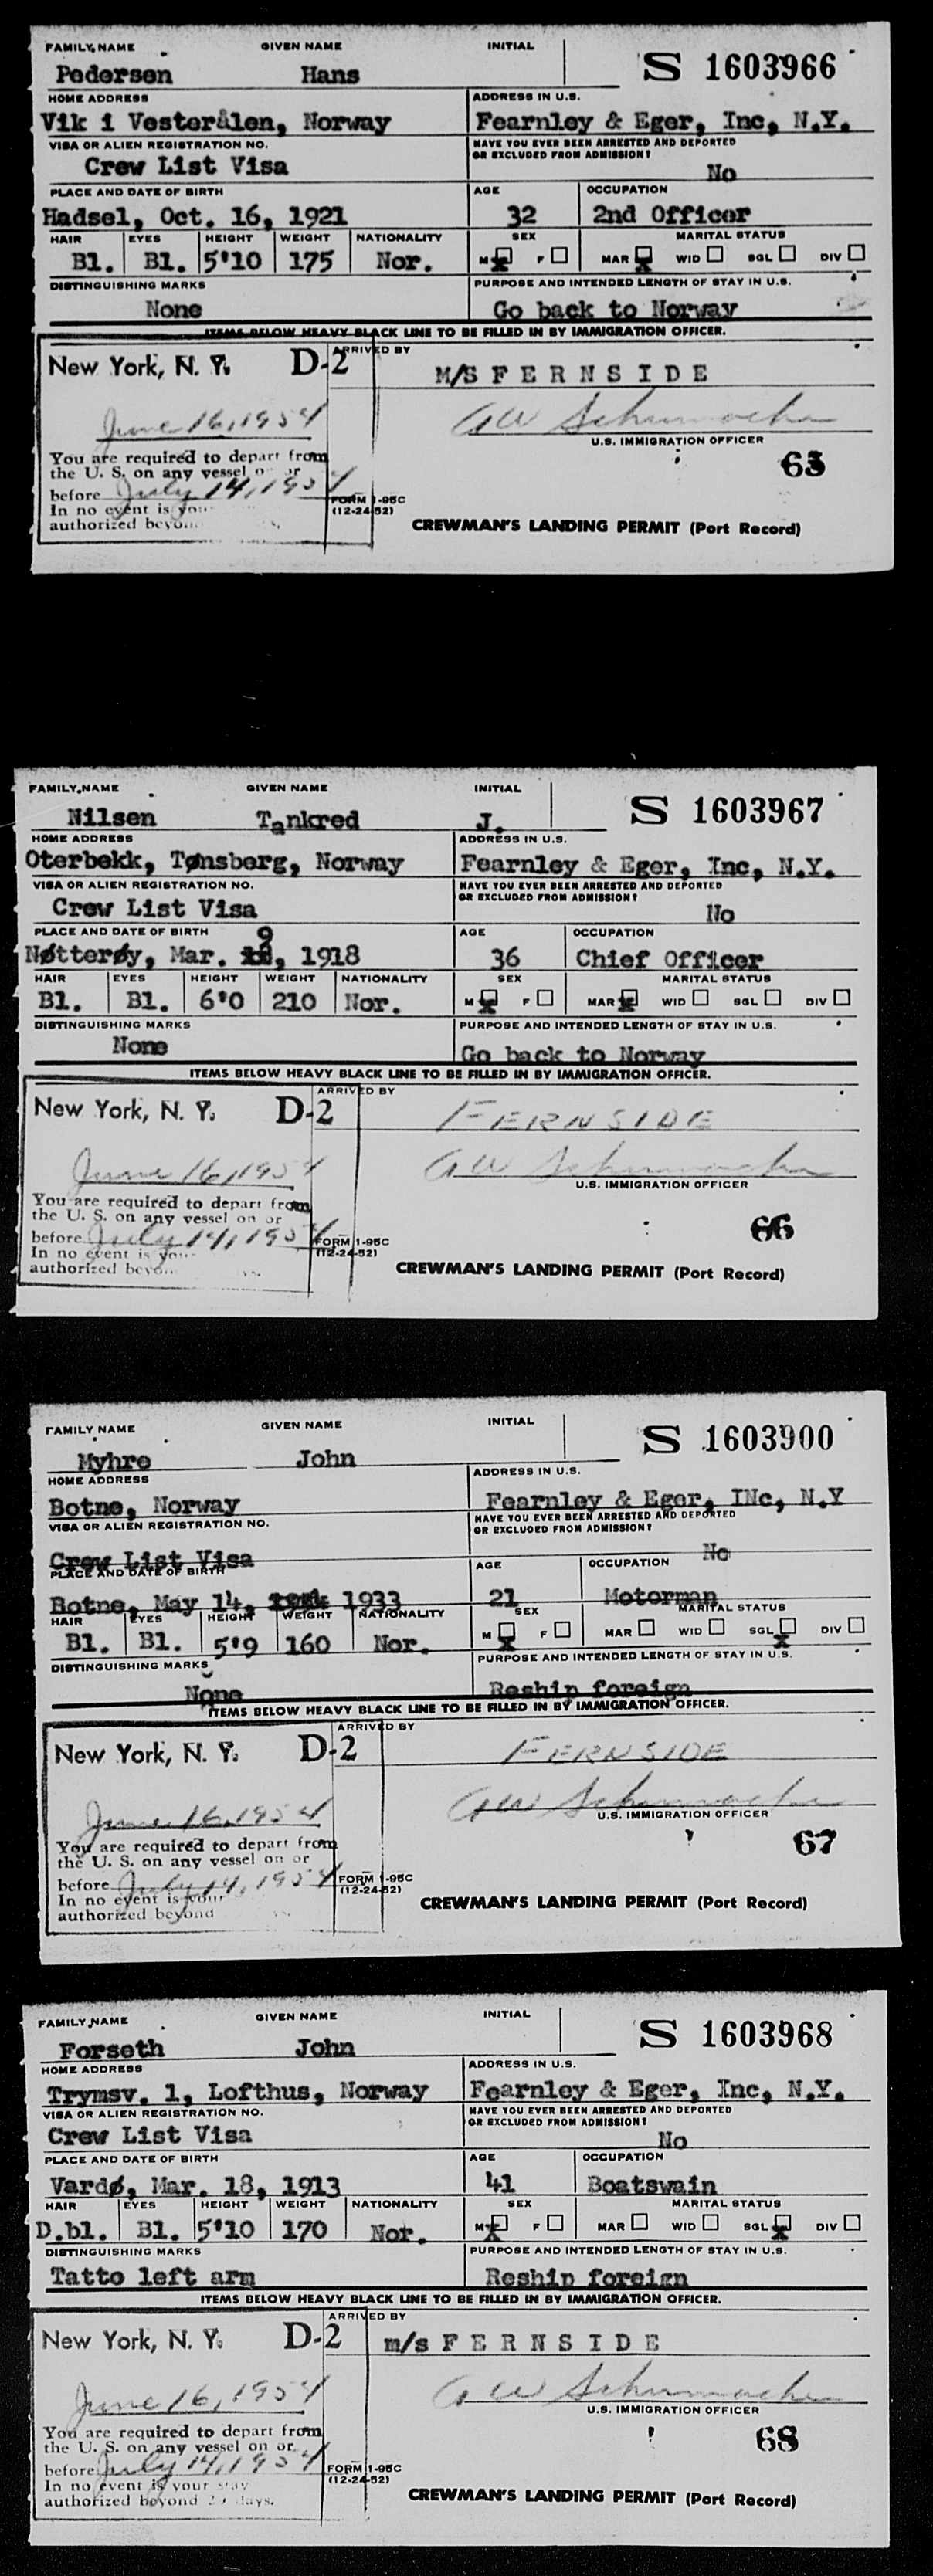 FAMILY NAME GIVEN NAME INITIAL
Pedersen Hans S 1603966
HOME ADDRESS ADDRESS IN U.S.
Vik i Vesterålen, Norway Fearnley & Eger, Inc, N.Y.
VISA OR ALIEN REGISTRATION NO. HAVE YOU EVER BEEN ARRESTED AND DEPORTED
OR EXCLUDED FROM ADMISSION?
Crew List Visa No
PLACE AND DATE OF BIRTH AGE OCCUPATION
Hadsel, Oct. 16, 1921 32 2nd Officer
HAIR EYES HEIGHT WEIGHT NATIONALITY SEX MARITAL STATUS
Bl. Bl. 5'10 175 Nor. M X F MAR X WID SGL DIV
DISTINGUISHING MARKS PURPOSE AND INTENDED LENGTH OF STAY IN U.S.
None Go back to Norway
ITEMS BELOW HEAVY BLACK LINE TO BE FILLED IN BY IMMIGRATION OFFICER.
New York, N. Y. D-2 ARRIVED BY
M/S FERNSIDE
June 16, 1954 A W Schumacher
U.S. IMMIGRATION OFFICER
You are required to depart from
the U. S. on any vessel or
before July 14, 1954 63
In no event is your FORM I-95C
authorized beyond (12-24-52)
CREWMAN'S LANDING PERMIT (Port Record)
FAMILY NAME GIVEN NAME INITIAL
Nilsen Tankred J. S 1603967
HOME ADDRESS ADDRESS IN U.S.
Oterbekk, Tønsberg, Norway Fearnley & Eger, Inc, N.Y.
VISA OR ALIEN REGISTRATION NO. HAVE YOU EVER BEEN ARRESTED AND DEPORTED
OR EXCLUDED FROM ADMISSION?
Crew List Visa No
PLACE AND DATE OF BIRTH AGE OCCUPATION
Nøtterøy, Mar. 9, 1918 36 Chief Officer
HAIR EYES HEIGHT WEIGHT NATIONALITY SEX MARITAL STATUS
Bl. Bl. 6'0 210 Nor. M X F MAR X WID SGL DIV
DISTINGUISHING MARKS PURPOSE AND INTENDED LENGTH OF STAY IN U.S.
None Go back to Norway
ITEMS BELOW HEAVY BLACK LINE TO BE FILLED IN BY IMMIGRATION OFFICER.
New York, N. Y. D-2 ARRIVED BY
FERNSIDE
June 16, 1954 A W Schumacher
U.S. IMMIGRATION OFFICER
You are required to depart from
the U. S. on any vessel on or
before July 14, 1954 66
In no event is your FORM I-95C
authorized beyond (12-24-52)
CREWMAN'S LANDING PERMIT (Port Record)
FAMILY NAME GIVEN NAME INITIAL
Myhre John S 1603900
HOME ADDRESS ADDRESS IN U.S.
Botne, Norway Fearnley & Eger, INc, N.Y
VISA OR ALIEN REGISTRATION NO. HAVE YOU EVER BEEN ARRESTED AND DEPORTED
OR EXCLUDED FROM ADMISSION?
Crew List Visa No
PLACE AND DATE OF BIRTH AGE OCCUPATION
Botne, May 14, 1933 21 Motorman
HAIR EYES HEIGHT WEIGHT NATIONALITY SEX MARITAL STATUS
Bl. Bl. 5'9 160 Nor. M X F MAR WID SGL X DIV
DISTINGUISHING MARKS PURPOSE AND INTENDED LENGTH OF STAY IN U.S.
None Reship foreign
ITEMS BELOW HEAVY BLACK LINE TO BE FILLED IN BY IMMIGRATION OFFICER.
New York, N. Y. D-2 ARRIVED BY
FERNSIDE
June 16, 1954 A W Schumacher
U.S. IMMIGRATION OFFICER
You are required to depart from
the U. S. on any vessel on or
before July 14, 1954 67
In no event is your FORM I-95C
authorized beyond (12-24-52)
CREWMAN'S LANDING PERMIT (Port Record)
FAMILY NAME GIVEN NAME INITIAL
Forseth John S 1603968
HOME ADDRESS ADDRESS IN U.S.
Trymsv. 1, Lofthus, Norway Fearnley & Eger, Inc, N.Y.
VISA OR ALIEN REGISTRATION NO. HAVE YOU EVER BEEN ARRESTED AND DEPORTED
OR EXCLUDED FROM ADMISSION?
Crew List Visa No
PLACE AND DATE OF BIRTH AGE OCCUPATION
Vardø, Mar. 18, 1913 41 Boatswain
HAIR EYES HEIGHT WEIGHT NATIONALITY SEX MARITAL STATUS
D.bl. Bl. 5'10 170 Nor. M X F MAR WID SGL X DIV
DISTINGUISHING MARKS PURPOSE AND INTENDED LENGTH OF STAY IN U.S.
Tatto left arm Reship foreign
ITEMS BELOW HEAVY BLACK LINE TO BE FILLED IN BY IMMIGRATION OFFICER.
New York, N. Y. D-2 ARRIVED BY
m/s FERNSIDE
June 16, 1954 A W Schumacher
U.S. IMMIGRATION OFFICER
You are required to depart from
the U. S. on any vessel on or
before July 14, 1954 68
In no event is your stay FORM I-95C
authorized beyond 29 days. (12-24-52)
CREWMAN'S LANDING PERMIT (Port Record)